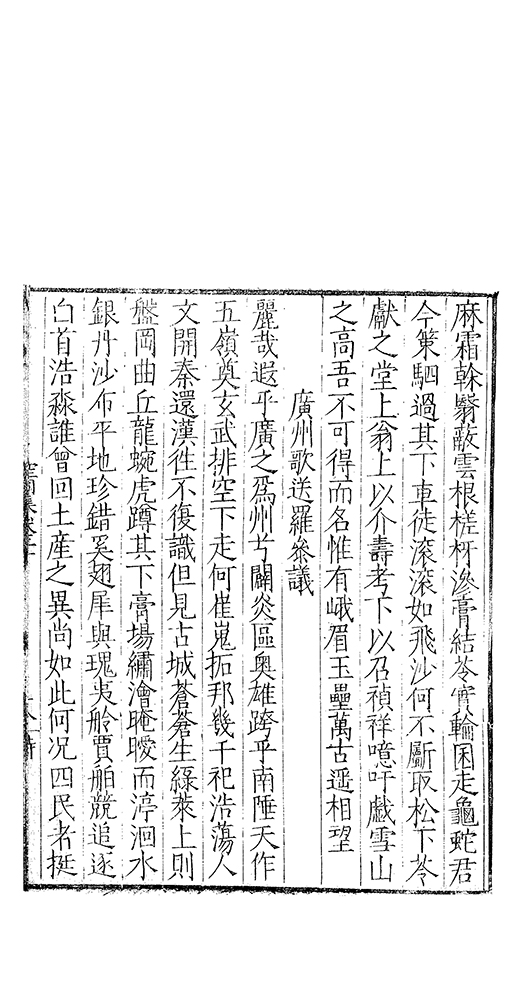 麻霜榦翳蔽雲根槎枒滲膏結苓實輪囷走龜蛇君
今策駟過其下車徒滚滚如飛沙何不斸取松下苓
獻之堂上翁上以介壽考下以召禎祥噫吁戲雪山
之高吾不可得而名惟有峨眉玉壘萬古遥相望
廣州歌送羅叅議
麗哉遐乎廣之爲州兮闢炎區奥雄跨乎南陲天作
五嶺奠玄武排空下走何崔嵬拓邦幾千祀浩蕩人
文開秦還漢徃不復識但見古城蒼蒼生緑萊上則
盤岡曲丘龍蜿虎蹲其下膏場繡澮晻曖而渟洄水
銀丹沙布平地珍錯奚翅犀與瑰夷舲賈舶競追逐
白首浩淼誰曾回土産之異尚如此何况四民者挺